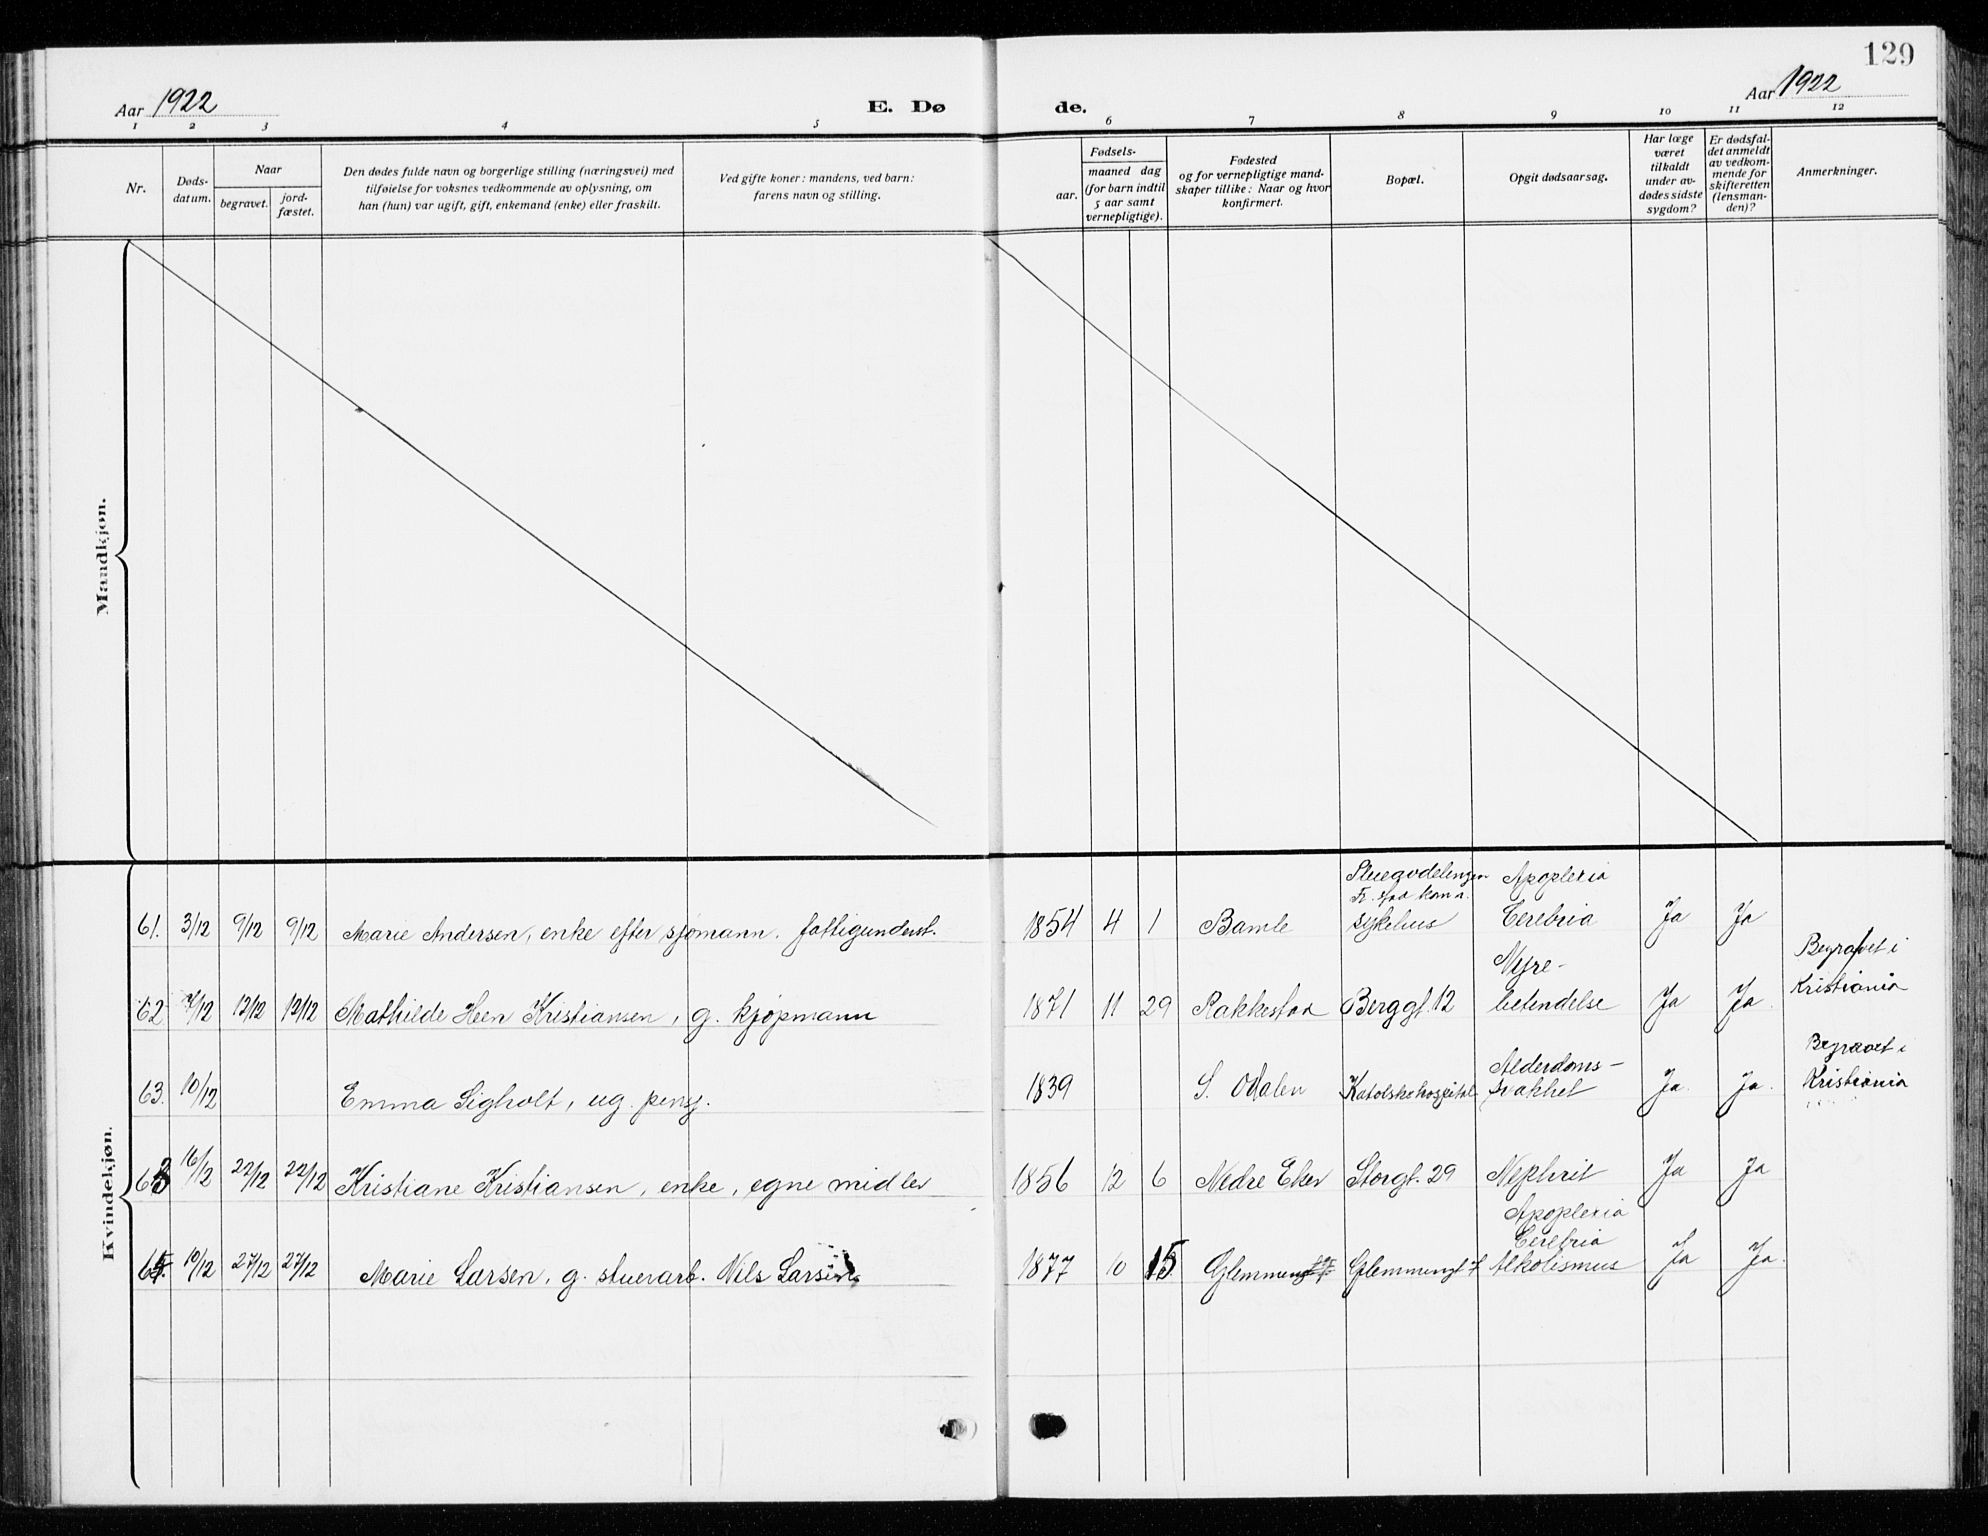 129
Aar 1922
E. Dø
de.
Aar 1922
1 2 3 4 5 6 7 8 9 10 11 12
Nr.
Døds-
datum.
Naar
begravet.
jord-
fæstet.
Den dødes fulde navn og borgerlige stilling (næringsvei) med
tilføielse for voksnes vedkommende av oplysning, om
han (hun) var ugift, gift, enkemand (enke) eller fraskilt.
Ved gifte koner: mandens, ved barn:
farens navn og stilling.
Fødsels-
aar.
maaned dag
(for barn indtil
5 aar samt
vernepligtige).
Fødested
og for vernepligtige mand-
skaper tillike: Naar og hvor
konfirmert.
Bopæl.
Opgit dødsaarsag.
Har læge
været
tilkaldt
under av-
dødes sidste
sygdom?
Er dødsfal-
det anmeldt
av vedkom-
mende for
skifteretten
(lensman-
den)?
Anmerkninger.
Mandkjøn.
Kvindekjøn.
61. 3/12 9/12 9/12 Marie Andersen, enke efter sjømann. fattigunderst. 1854 4 1 Bamle sykehus Apoplexia Cerebria Ja Ja
62 7/12 12/12 12/12 Mathilde Heen Kristiansen, g. kjøpmann 1871 11 29 Rakkestad Berggt. 12 Nyre-betendelse Ja Ja. Begravet i Kristiania
63. 10/12 Emma Sigholt, ug. pensj. 1839 S. Odalen Katolske hospital Alderdoms-svakhet Ja. Ja. Begravet i Kristiania
63 16/12 22/12 22/12 Kristiane Kristiansen, enke, egne midler 1856 12 6 Nedre Eker Storgt. 29 Nephrit Ja Ja
19/12 27/12 27/12 Marie Larsen, g. stuerarb. Nils Larsen 1877 10 15 Glemmen Glemmengt Apoplexia Cerebria Alkolismus Ja Ja.